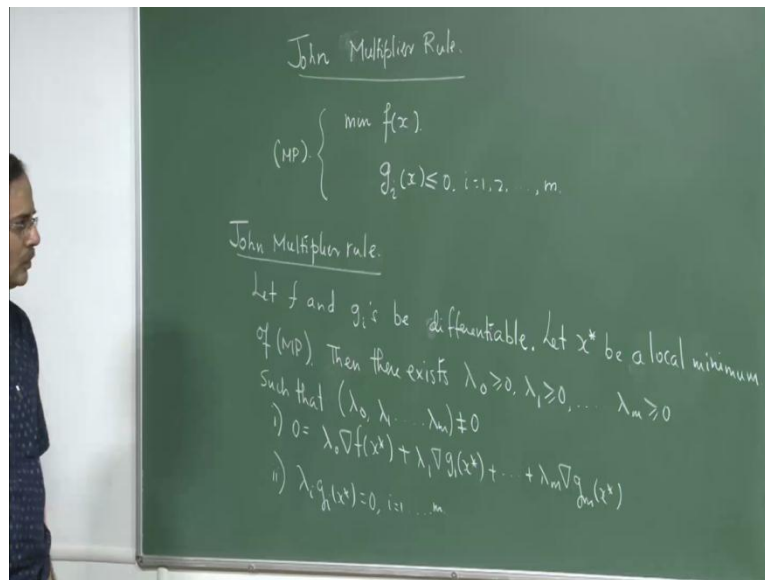 John Multiplier Rule.
min f(x).
(MP).
g_i(x) ≤ 0, i=1,2, ..., m.
John Multiplier rule.
Let f and g_i's be differentiable. Let x* be a local minimum
of (MP). Then there exists λ_0 ≥ 0, λ_1 ≥ 0, ... λ_m ≥ 0
Such that (λ_0, λ_1 ... λ_m) ≠ 0
i) 0 = λ_0 ∇f(x*) + λ_1 ∇g_1(x*) + ... + λ_m ∇g_m(x*)
ii) λ_i g_i(x*) = 0, i=1 ... m